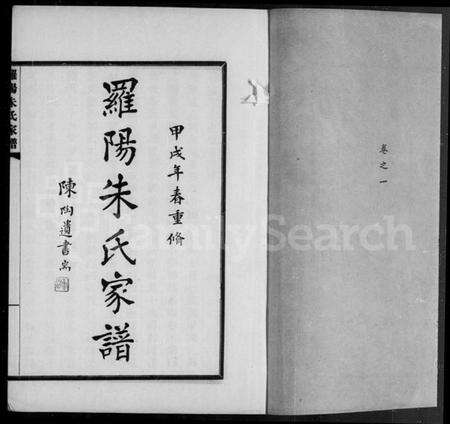 卷之一
甲戌年春重脩
羅陽朱氏家譜
陳陶遺書耑
羅陽朱氏家譜
FamilySearch